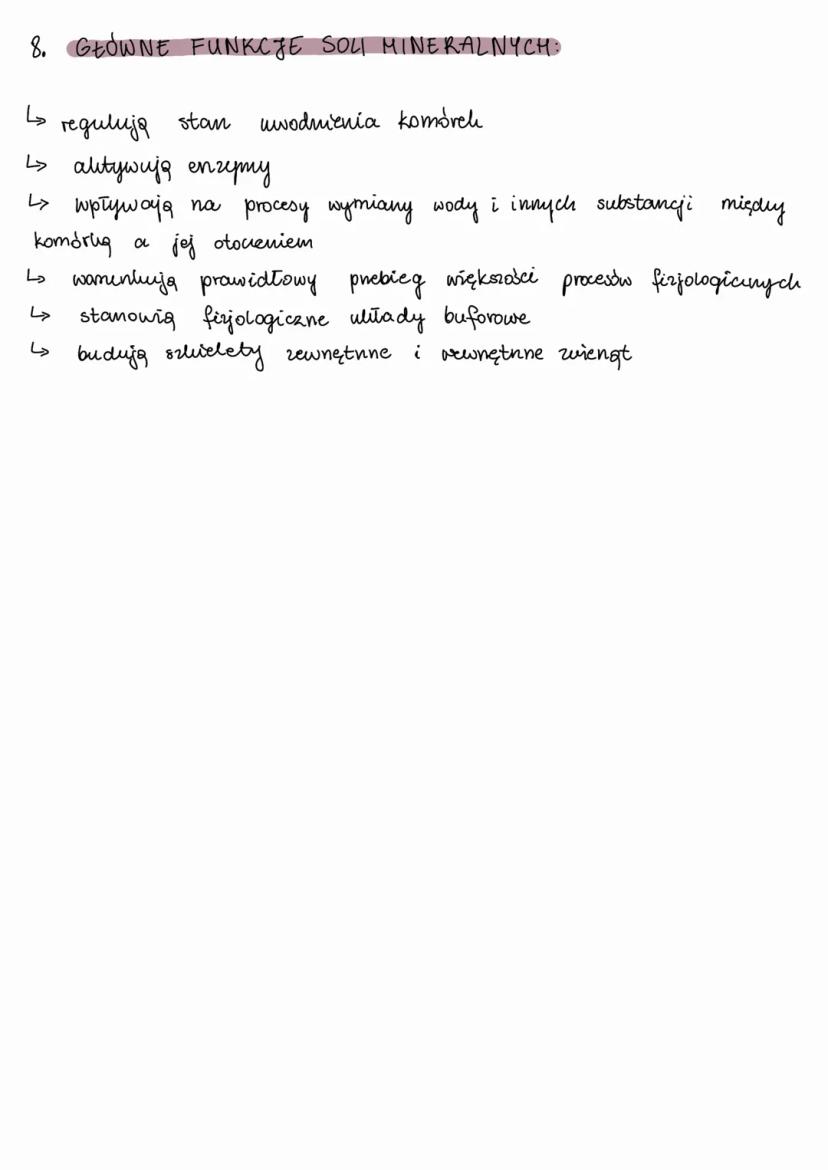 8. GŁÓWNE FUNKCJE SOLI MINERALNYCH:
↳ regulują stan uwodnienia komórek
↳ aktywują enzymy
↳ wpływają na procesy wymiany wody i innych substancji między
komórką a jej otoczeniem
↳ warunkują prawidłowy przebieg większości procesów fizjologicznych
↳ stanowią fizjologiczne układy buforowe
↳ budują szkielety zewnętrzne i wewnętrzne zwierząt